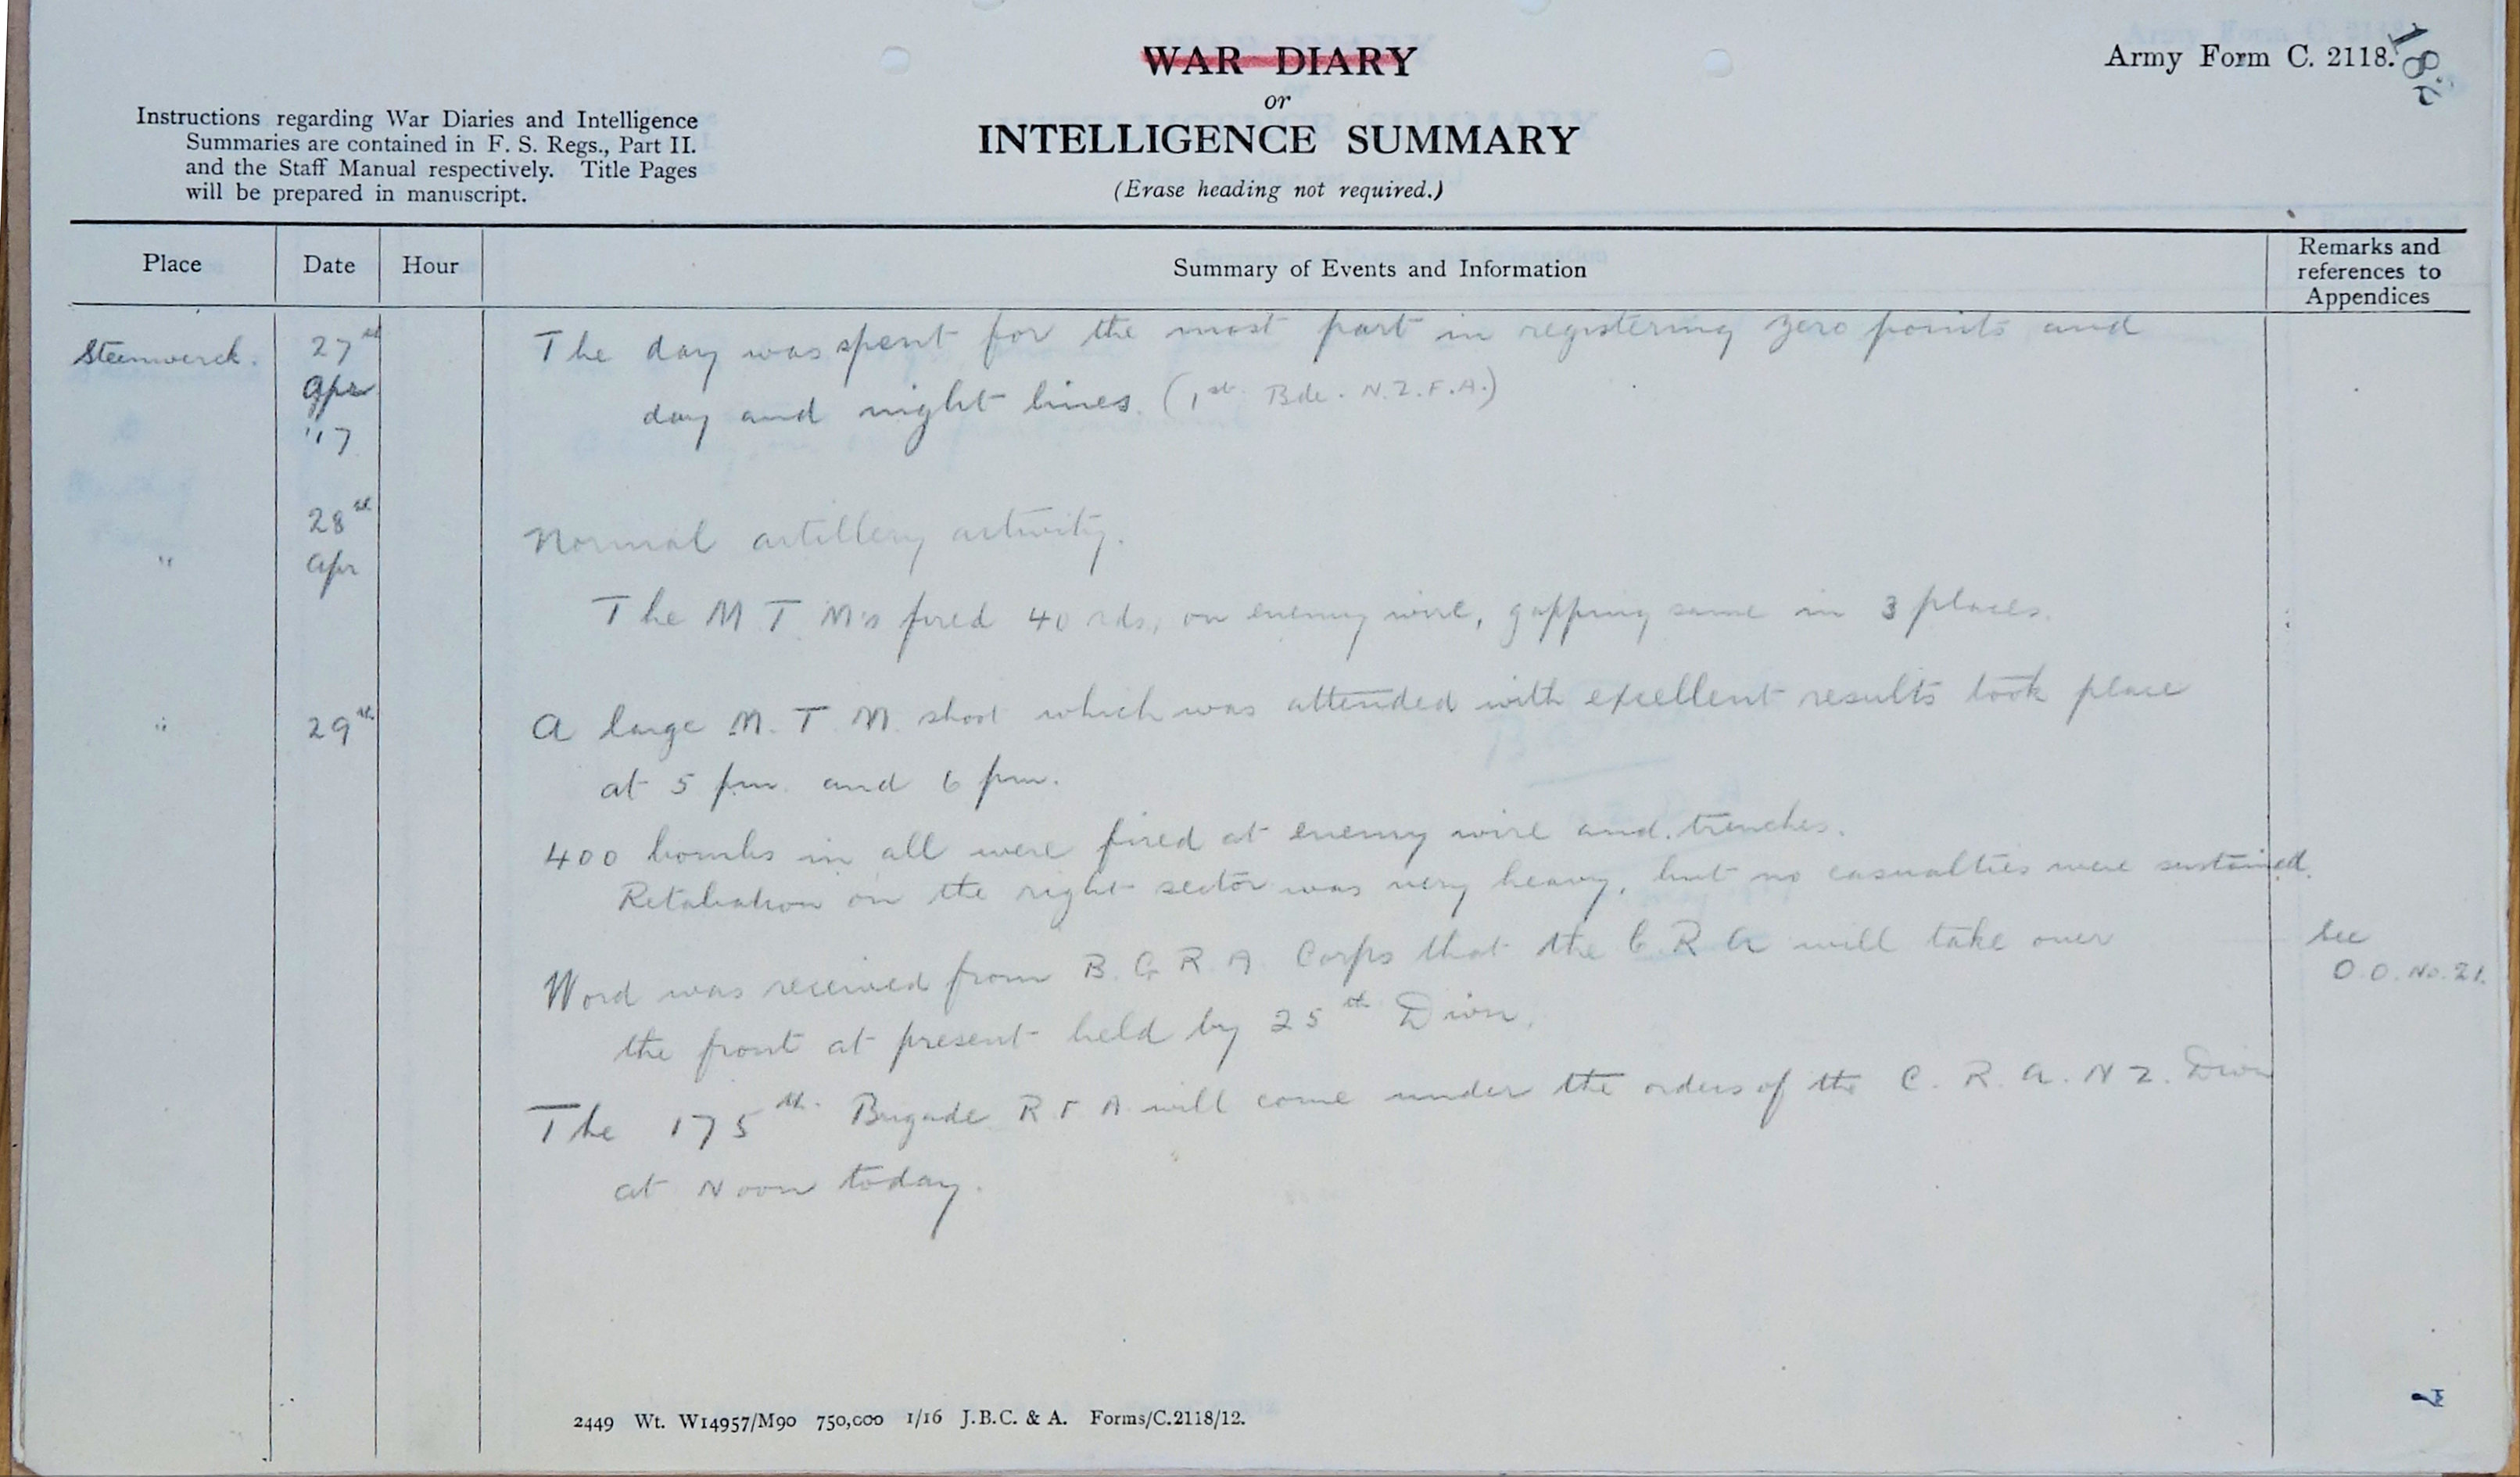 WAR DIARY
or
INTELLIGENCE SUMMARY
(Erase heading not required.)
Army Form C. 2118.
182
Instructions regarding War Diaries and Intelligence
Summaries are contained in F. S. Regs., Part II.
and the Staff Manual respectively. Title Pages
will be prepared in manuscript.
Place Date Hour Summary of Events and Information Remarks and
references to
Appendices
Steenwerck. 27th The day was spent for the most part in registering zero points and
Apr day and night lines. (1st Bde. N.Z.F.A.)
'17
28th Normal artillery activity.
" Apr
The M T. M's fired 40 rds, on enemy wire, gapping same in 3 places.
" 29th A large M. T M. shoot which was attended with excellent results took place
at 5 pm. and 6 pm.
400 bombs in all were fired at enemy wire and trenches.
Retaliation on the right sector was very heavy, but no casualties were sustained.
Word was received from B. G R A. Corps that the C R A will take over See
the front at present held by 25th Divn. O.O. No. 21.
The 175th Brigade R F A will come under the orders of the C. R. A. N Z. Divn
at Noon today.
2449 Wt. W14957/M90 750,000 1/16 J.B.C. & A. Forms/C.2118/12.